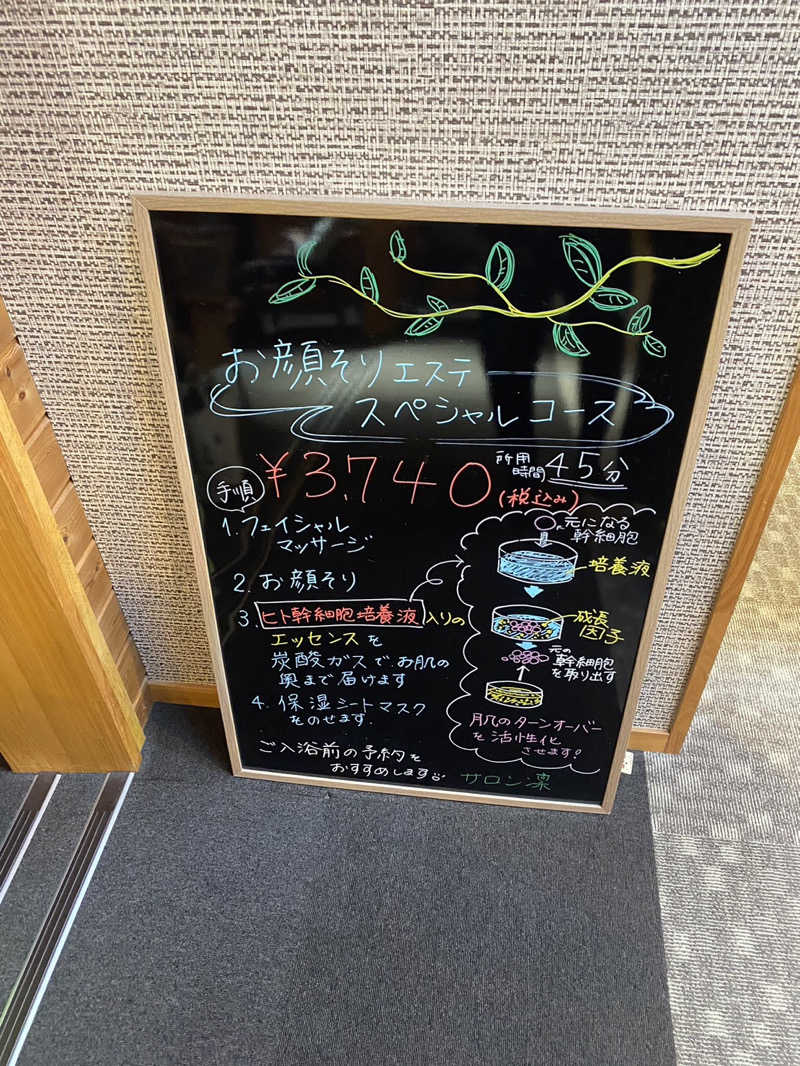 お顔そりエステ
スペシャルコース
¥3,740
(税込み)
所用
時間
45分
手順
1. フェイシャル
マッサージ
2. お顔そり
3. ヒト幹細胞培養液入りの
エッセンスを
炭酸ガスでお肌の
奥まで届けます
4. 保湿シートマスク
をのせます。
元になる
幹細胞
培養液
成長
因子
元の
幹細胞
を取り出す
肌のターンオーバー
を活性化
させます!
ご入浴前の予約を
おすすめします
サロン凛